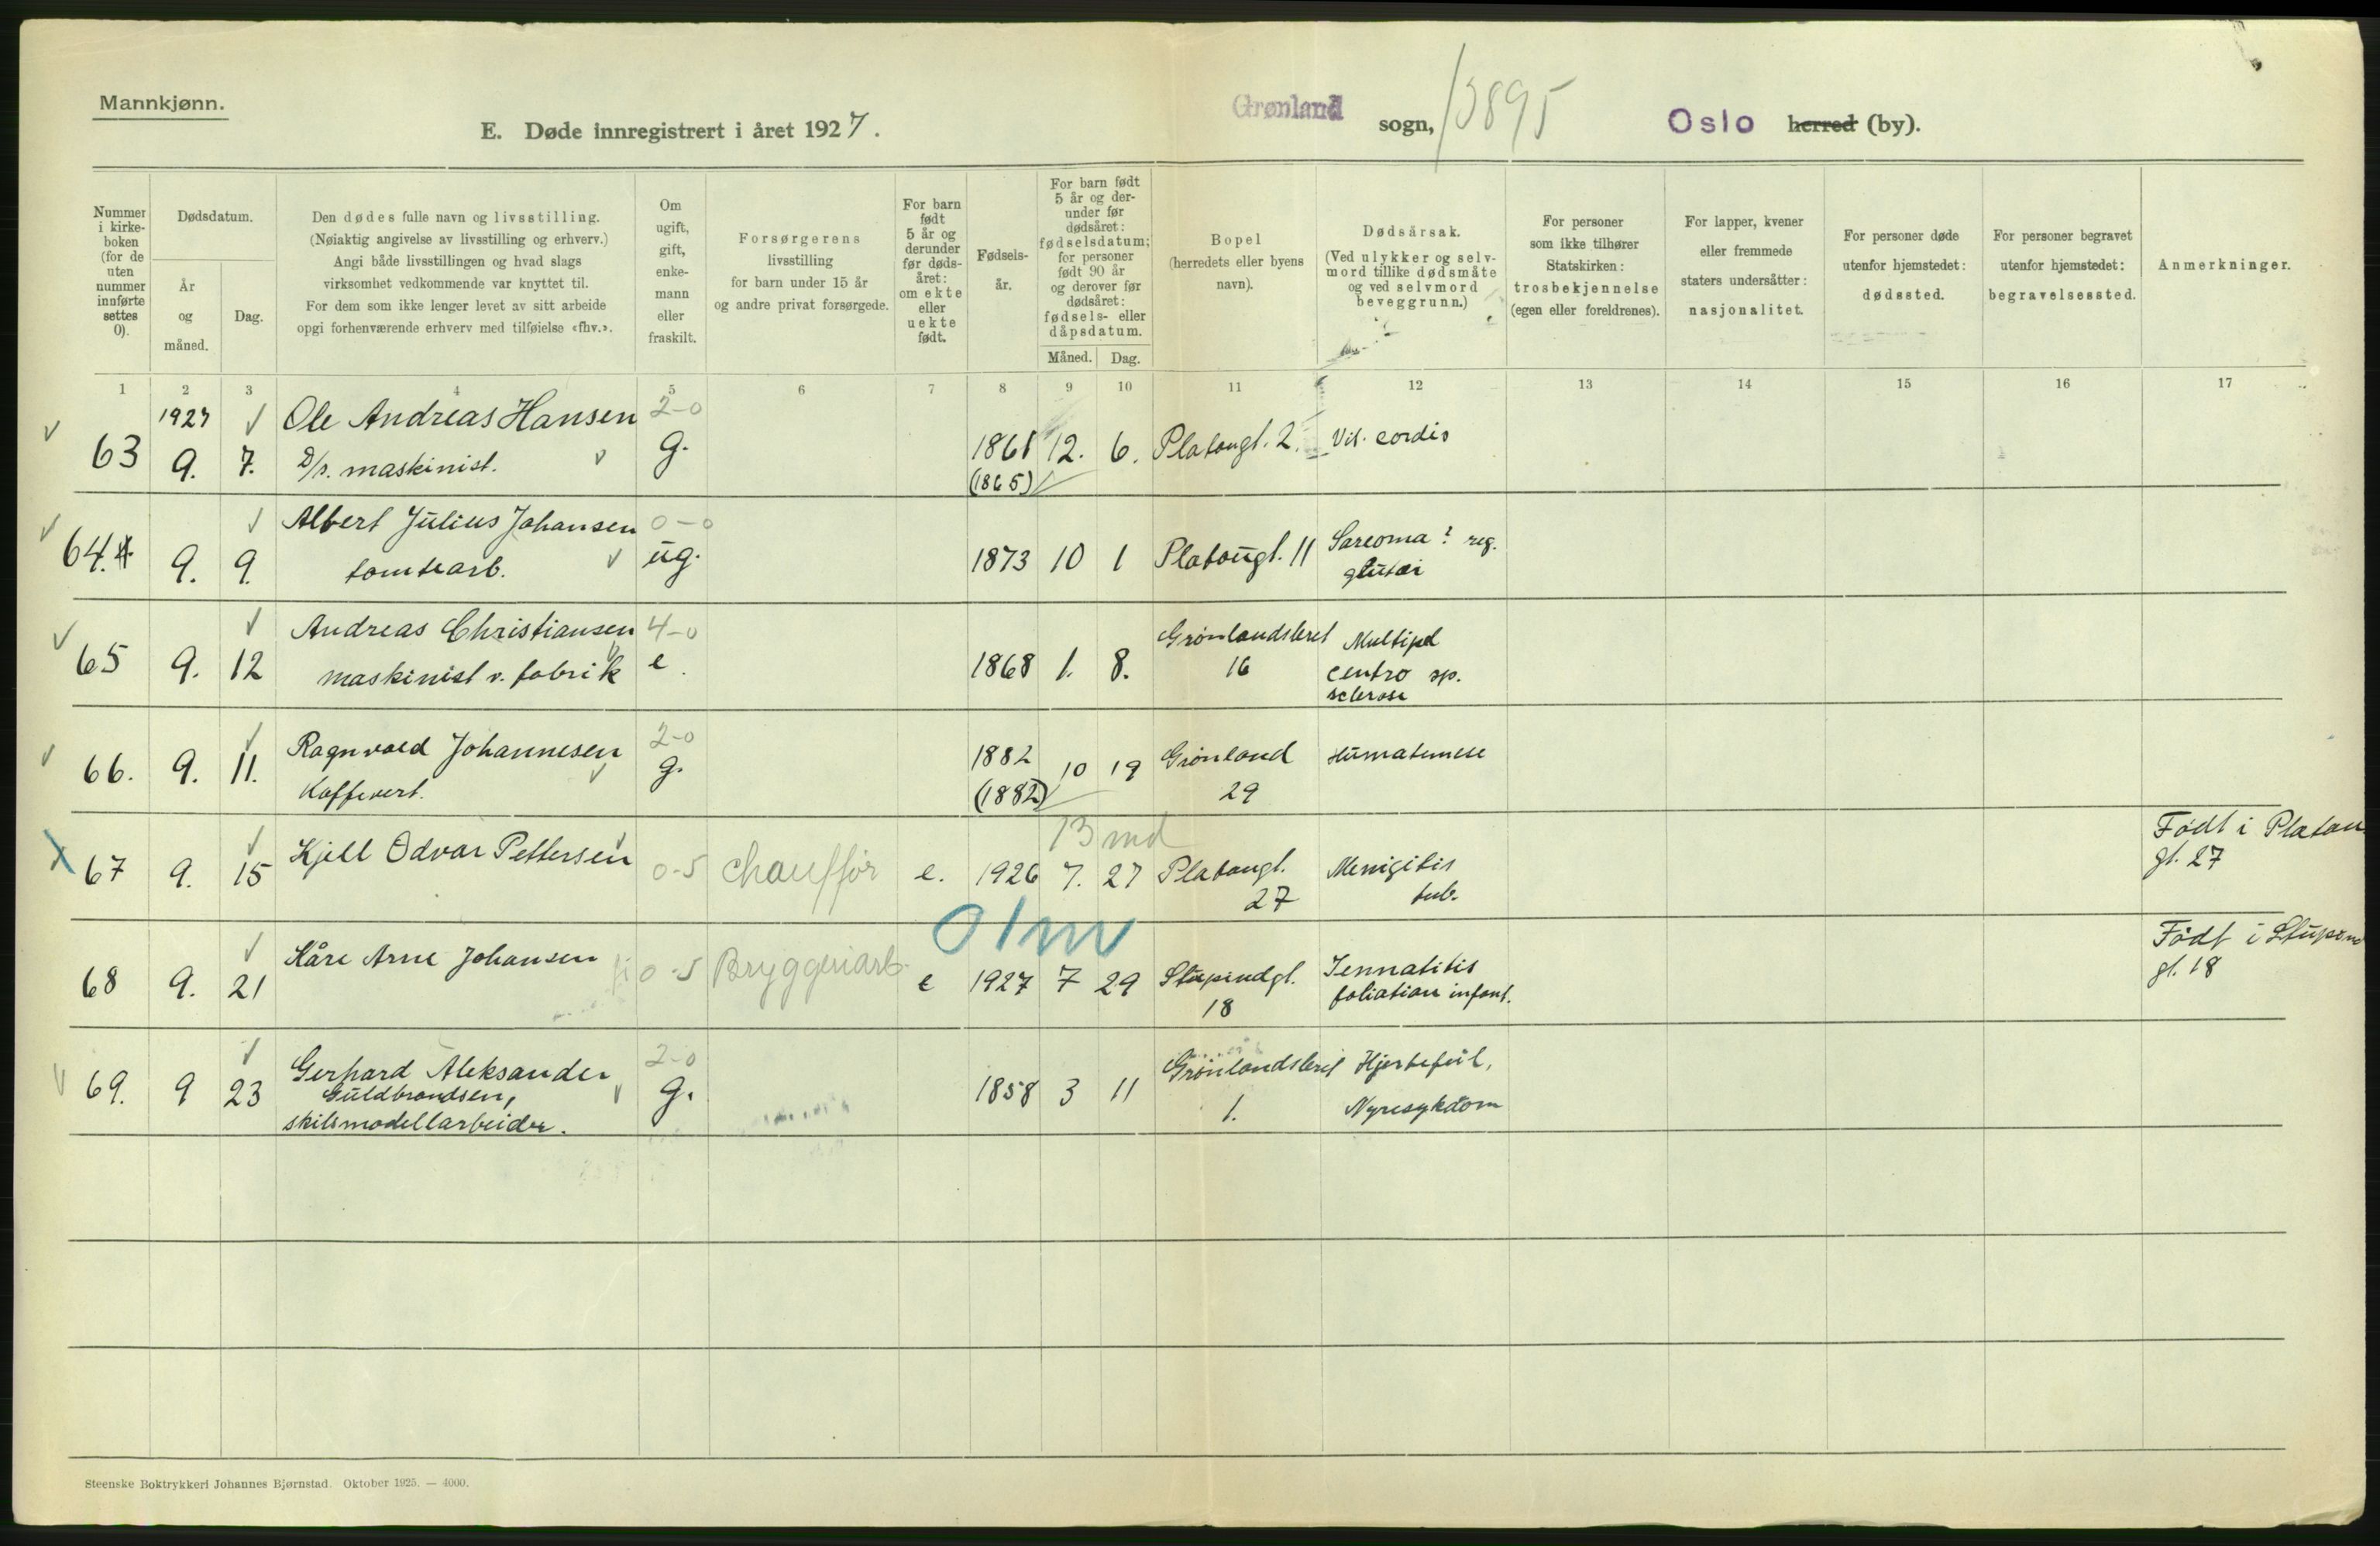 Mannkjønn.
E. Døde innregistrert i året 1927.
Grønland sogn, 13895 Oslo herred (by).
Nummer i kirkeboken (for de uten nummer innførte settes 0).
Dødsdatum.
År og måned.
Dag.
Den dødes fulle navn og livsstilling.
(Nøiaktig angivelse av livsstilling og erhverv.)
Angi både livsstillingen og hvad slags
virksomhet vedkommende var knyttet til.
For dem som ikke lenger levet av sitt arbeide
opgi forhenværende erhverv med tilføielse «fhv.».
Om ugift, gift, enkemann eller fraskilt.
Forsørgerens
livsstilling
for barn under 15 år
og andre privat forsørgede.
For barn født 5 år og derunder før dødsåret: om ekte eller uekte født.
Fødselsår.
For barn født 5 år og derunder før dødsåret: fødselsdatum; for personer født 90 år og derover før dødsåret: fødsels- eller dåpsdatum.
Måned. Dag.
Bopel
(herredets eller byens
navn).
Dødsårsak.
(Ved ulykker og selvmord tillike dødsmåte og ved selvmord beveggrunn.)
For personer
som ikke tilhører
Statskirken:
trosbekjennelse
(egen eller foreldrenes).
For lapper, kvener
eller fremmede
staters undersåtter:
nasjonalitet.
For personer døde
utenfor hjemstedet:
dødssted.
For personer begravet
utenfor hjemstedet:
begravelsessted.
Anmerkninger.
1 2 3 4 5 6 7 8 9 10 11 12 13 14 15 16 17
1927 Ole Andreas Hansen 2-0
63 9. 7. D/s. maskinist. g. 1861 12. 6. Platougt. 2. Vit. cordis
(1865)
Albert Julius Johansen 0-0
64. 9. 9. tomtearb. ug. 1873 10 1 Platougt. 11 Sarcoma? reg.
glutæi
Andreas Christiansen 4-0 Grønlandsleret Multipel
65 9. 12 maskinist v. fabrik e. 1868 1. 8. 16 centro sp.
sclerose
Ragnvald Johannesen 2-0 1882
66. 9. 11. Kaffevert. g. (1882) 10 19 Grønland 29 Hümatemese
13 md
67 9. 15 Kjell Odvar Pettersen 0-5 Chauffør e. 1926 7. 27 Platougt. 27 Menigitis tub. Født i Platou
gt. 27
01m
68 9. 21 Kåre Arne Johansen 0-5 Bryggeriarb. e 1927 7 29 Stupindgt. 18 foliation infant. Født i
gt. 18
Gerhard Aleksander 2-0 Grønlandsleret Hjertefeil,
69. 9 23 Guldbrandsen, g. 1858 3 11 1. Nyresykdom
skilsmodellarbeider.
Steenske Boktrykkeri Johannes Bjørnstad. Oktober 1925. — 4000.